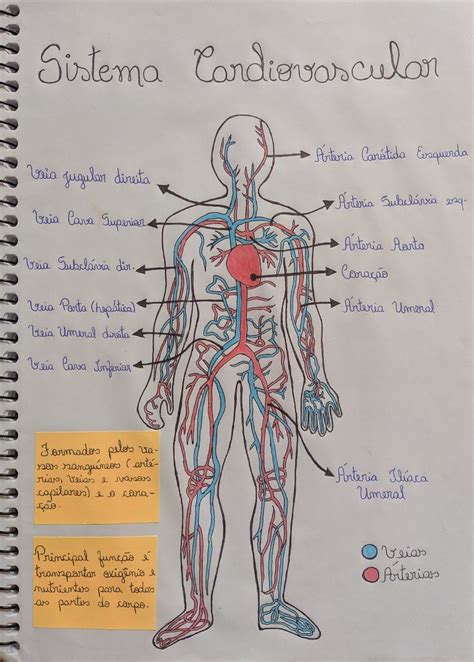 Sistema Cardiovascular
Artéria Carótida Esquerda
Veia jugular direita
Artéria Subclávia esq.
Veia Cava Superior
Artéria Aorta
Veia Subclávia dir.
Coração
Veia Porta (hepática)
Artéria Umeral
Veia Umeral direita
Veia Cava Inferior
Formados pelos va-
sos sanguíneos (arté-
rias, veias e vasos
capilares) e o cora-
ção.
Artéria Ilíaca
Umeral
Veias
Artérias
Principal função é
transportar oxigênio e
nutrientes para todas
as partes do corpo.